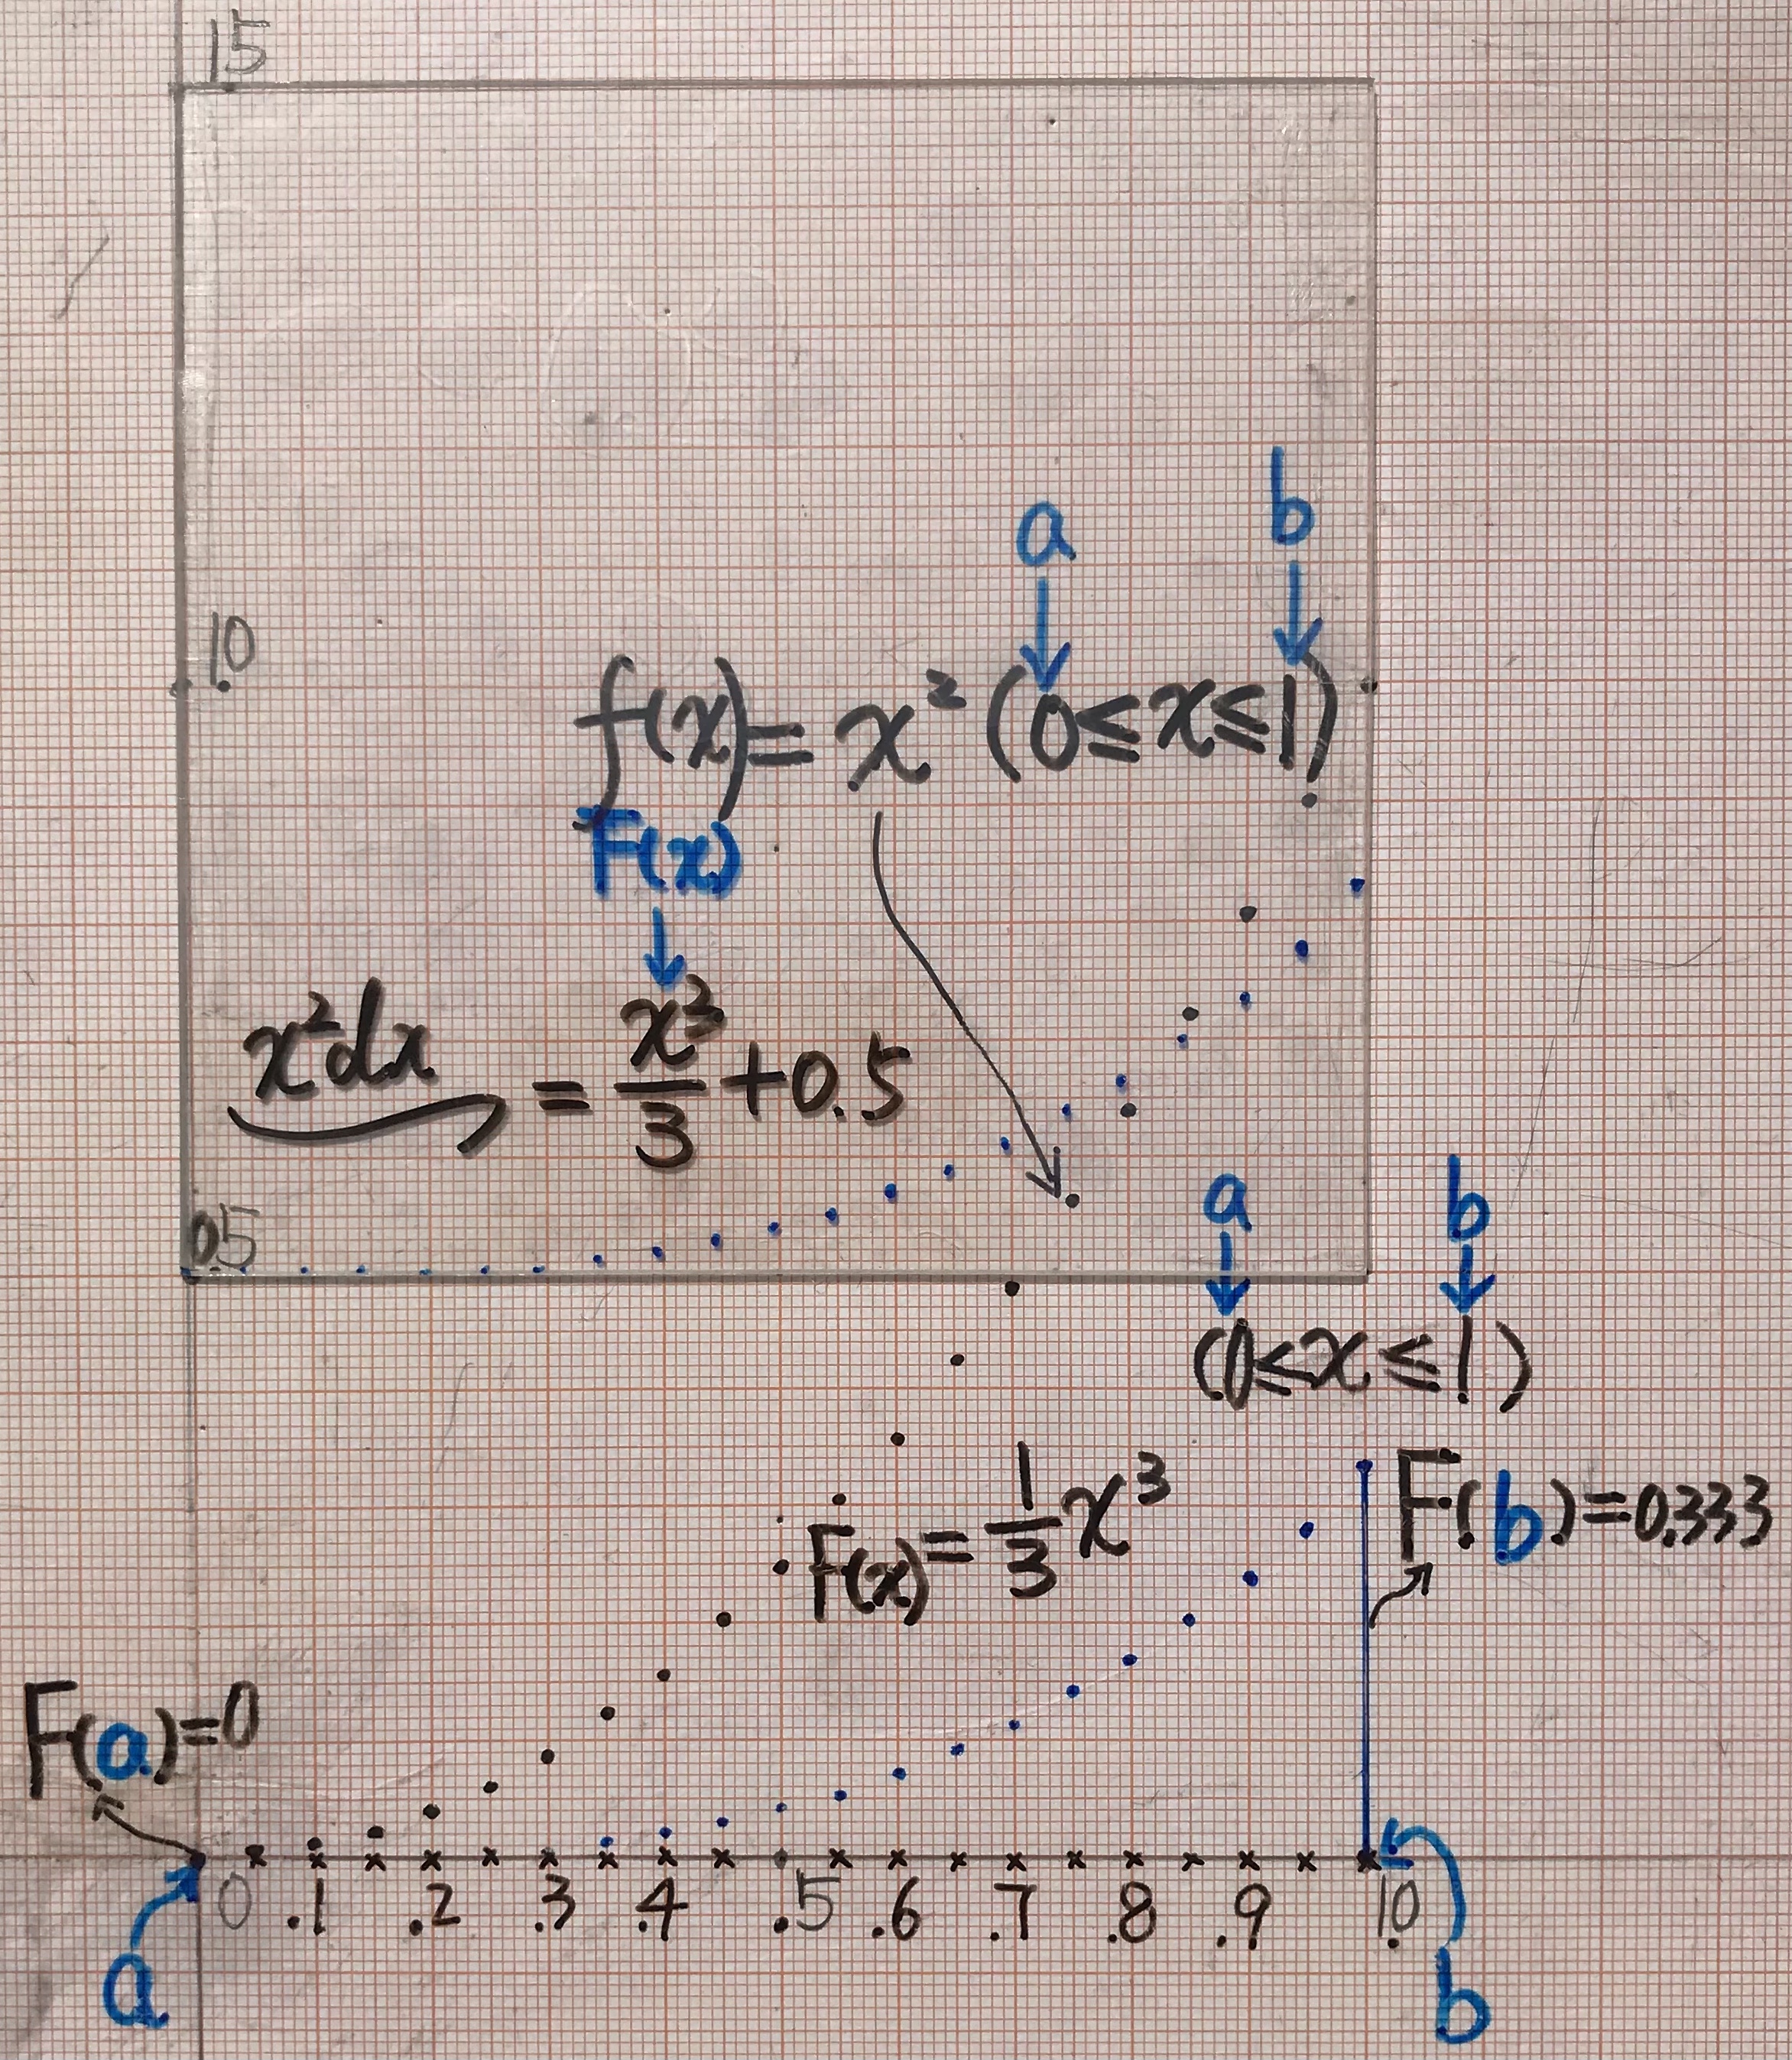 15
a b
1.0
f(x) = x² (0 ≤ x ≤ 1)
F(x)
x²dx = x³/3 + 0.5
0.5
a b
(0 ≤ x ≤ 1)
F(x) = 1/3 x³
F(b) = 0.333
F(a) = 0
0 .1 .2 .3 .4 .5 .6 .7 .8 .9 1.0
a b